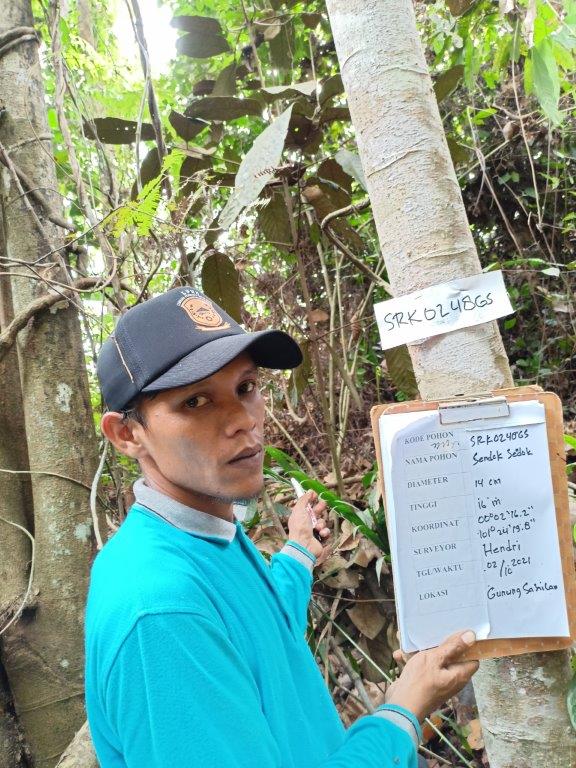 SRK0248GS
KODE POHON SRK0248GS
NAMA POHON Sendok Sendok
DIAMETER 14 cm
TINGGI 16 m
KOORDINAT 00°02'16.2"
101°24'19.8"
SURVEYOR Hendri
TGL/WAKTU 02/10 2021
LOKASI Gunung Sahilan